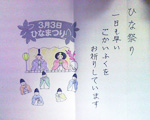 3月3日
ひなまつり
ひな祭り
一日も早い
ごかいふくを
お祈りしています